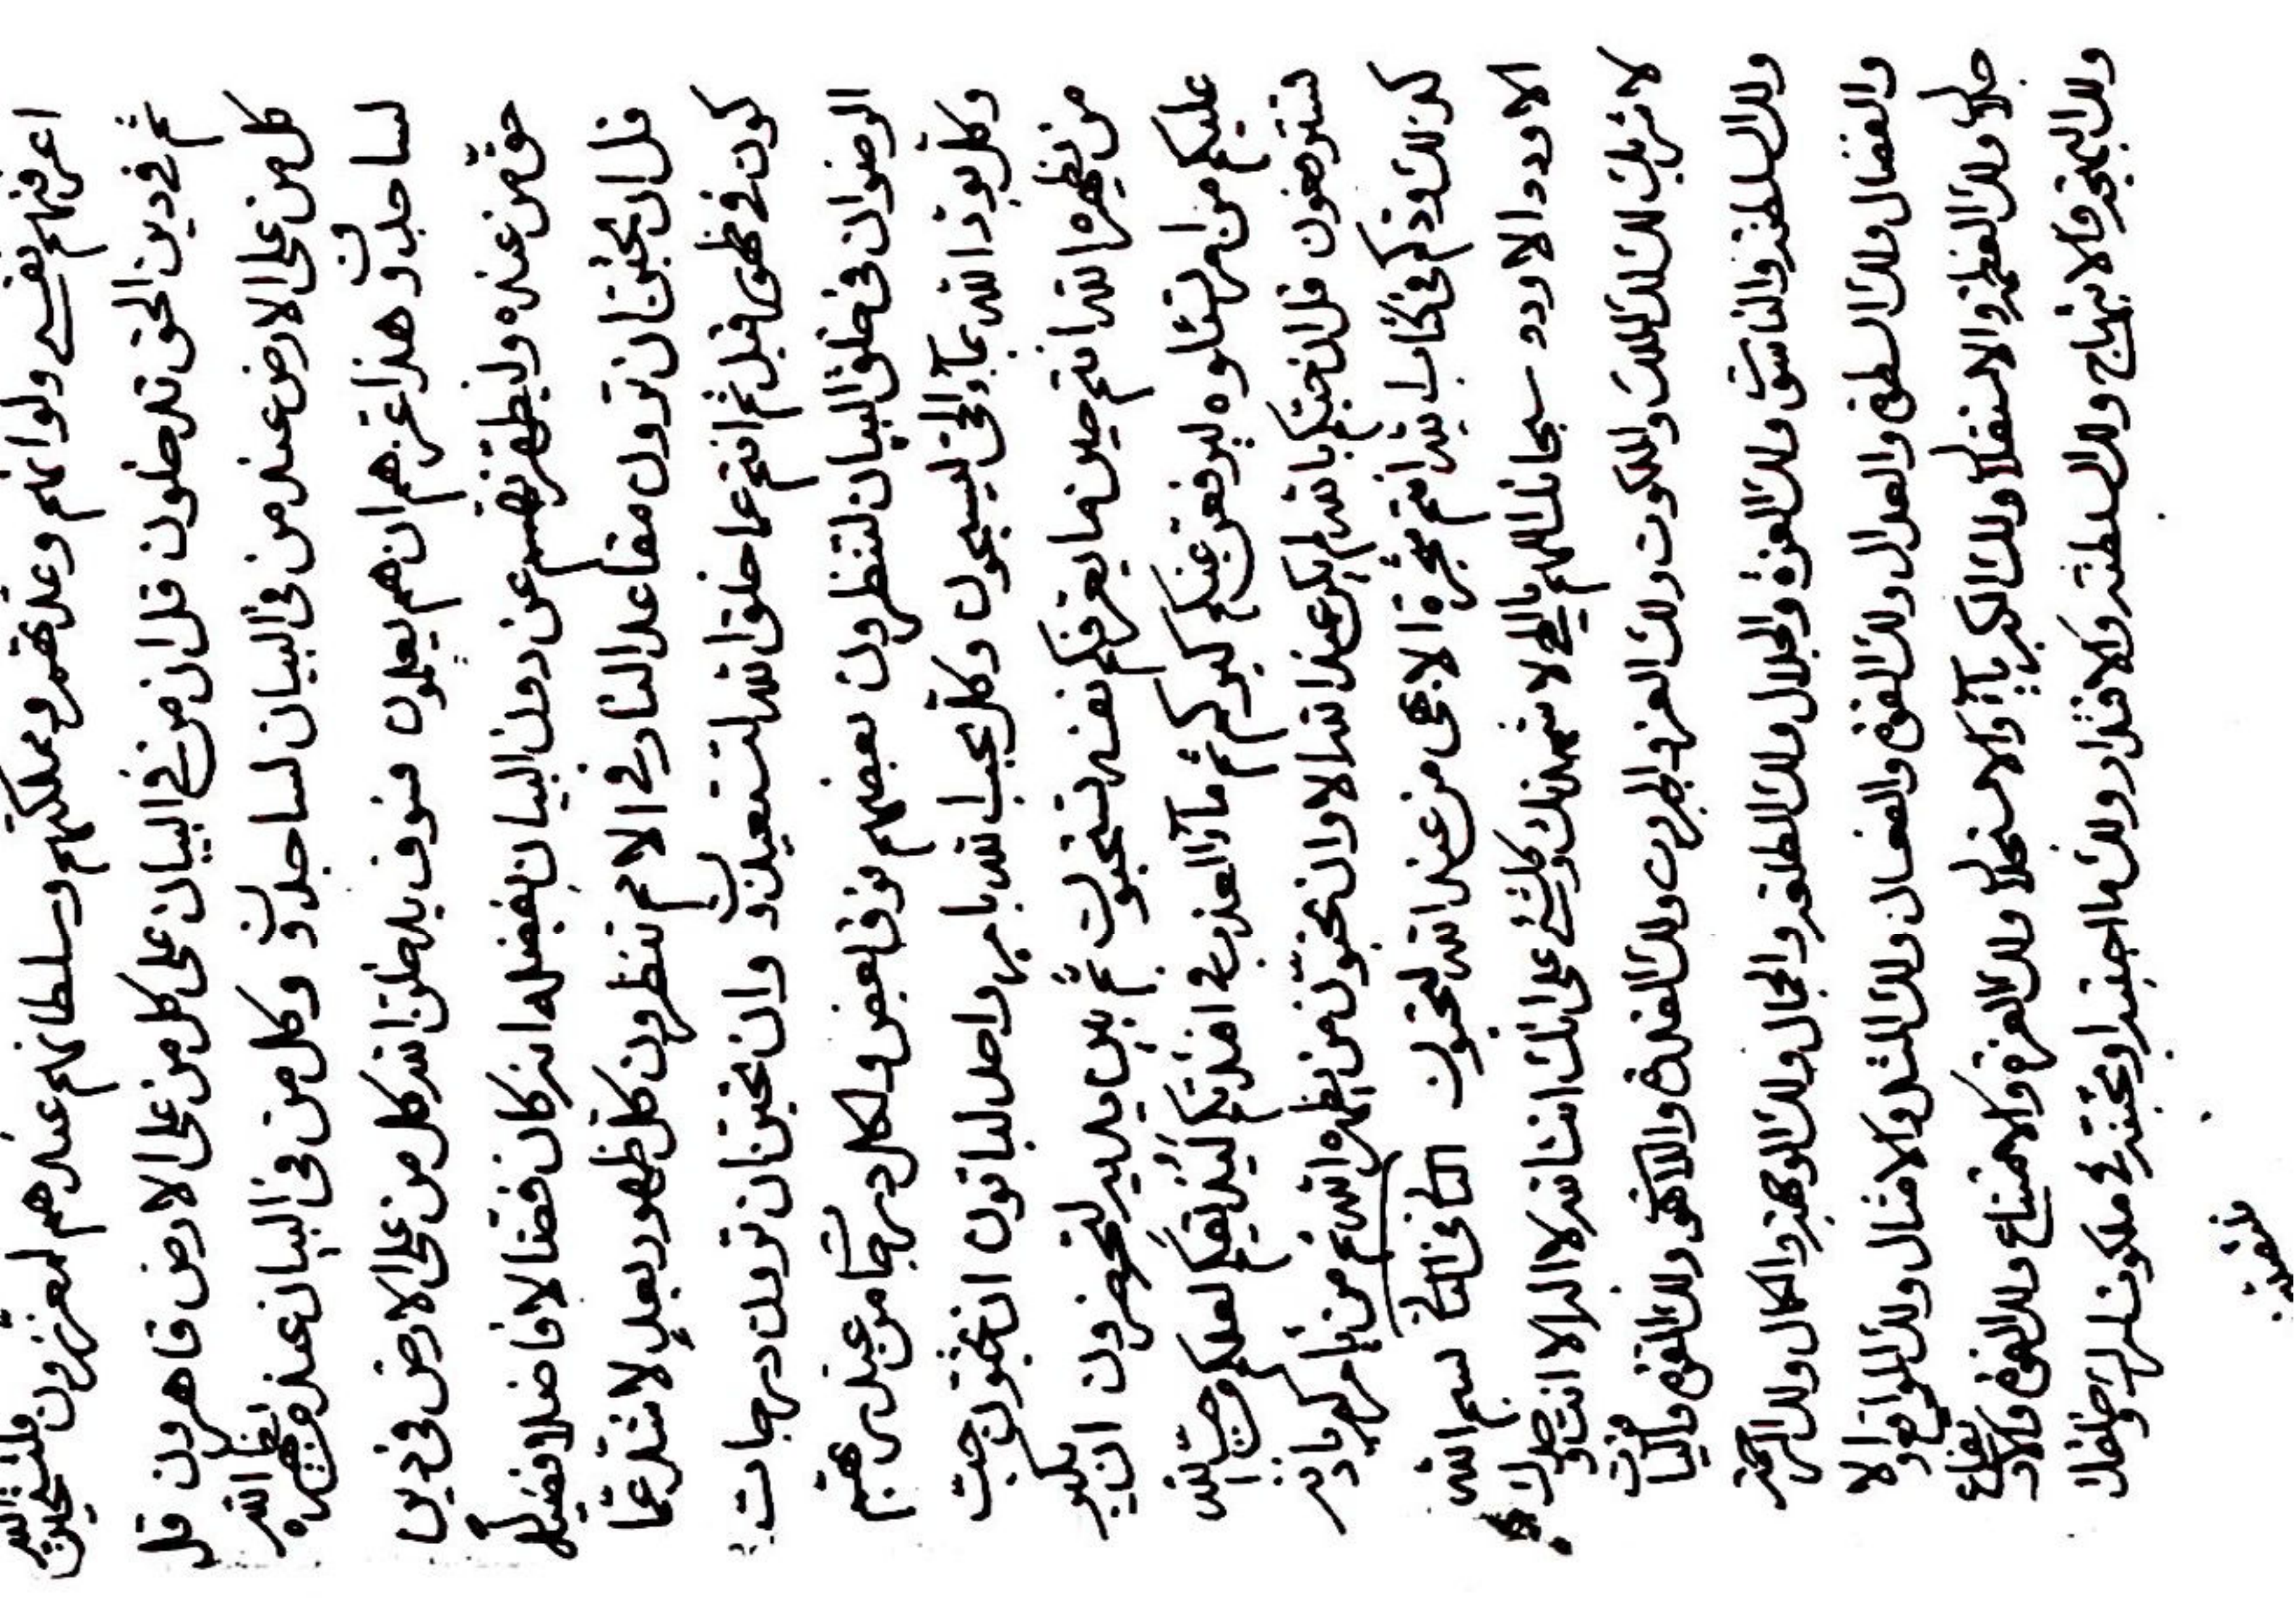 اعرفنهم نفسي ولو انهم وعدتهم ومملكتهم وسلطانهم عندهم لمعززون فلتتقين الله
ثم في دين الحق تدخلون قل ان من في البيان على كل من على الارض قاهرون قل
كل من على الارض عند من في البيان لساجدون وكل من في البيان عند من يظهره الله
لساجدون وهذا عز هم ان هم يعلمون سوف يدخلن الله كل من على الارض في دين
حق من عنده وليظهرنهم عن دون البيان بفضله انه كان فضالا فاضلا فضيلا
قل ان تحبن ان ترون مقاعد النار في الامم تنظرون كل ظهور بعد لا شد عما
كون في ظهور قبل ثم انتم عما خلق الله لتستعيذون وان تحبن ان ترون درجات
الرضوان في خلق البيان لتنظرون بعضهم فوق بعض ولكل درجات من عند ربهم
وكل بوذ الله بما والحق ليسبحون وكل يحب الله بامره واحد لياتون ان تحبون حب
من نظهره الله انتم حين ما يعرفكم نفسه تحبون ثم بين يديه لتحضرون ان يكبر
عليكم من امر تسئلوه ليرفعن عنكم كبركم ثم ماء العذب في افئدتكم ليذيقكم لعلكم وحب الله
لترضون قل ان حبكم بالله لم يكن عند الله الا وان تحبون من يظهره الله ثم من يامركم باذنه
كذلك وذكر في كتاب الله انتم ثمرة الاحبى من عند الله لتحبون الثاني في الثاني بسم الله
الاودد الاودد سبحانك اللهم يا الهي لاشهدنك وكلشيء على انك انت الله لا اله الا انت وحدك
لا شريك لك لك الملك والملكوت ولك العز والجبروت ولك القدرة واللاهوت ولك القوة والياقوت
ولك السلطنة والناسوت ولك العزة والجلال ولك الطلعة والجمال ولك الوجهة والكمال ولك الرحمة
والفضال ولك السطوة والعدال ولك القوة والفعال ولك المثل والامثال ولك المواقع والاجلال
ولك العظمة والاستقلال ولك الكبرياء والاستجلال ولك العزة والامتناع ولك القوة والارتفاع
ولك البهجة والابتهاج ولك السلطنة والاقتدار ولك ما احببته او تحبنه في ملكوت امرك وخلقك